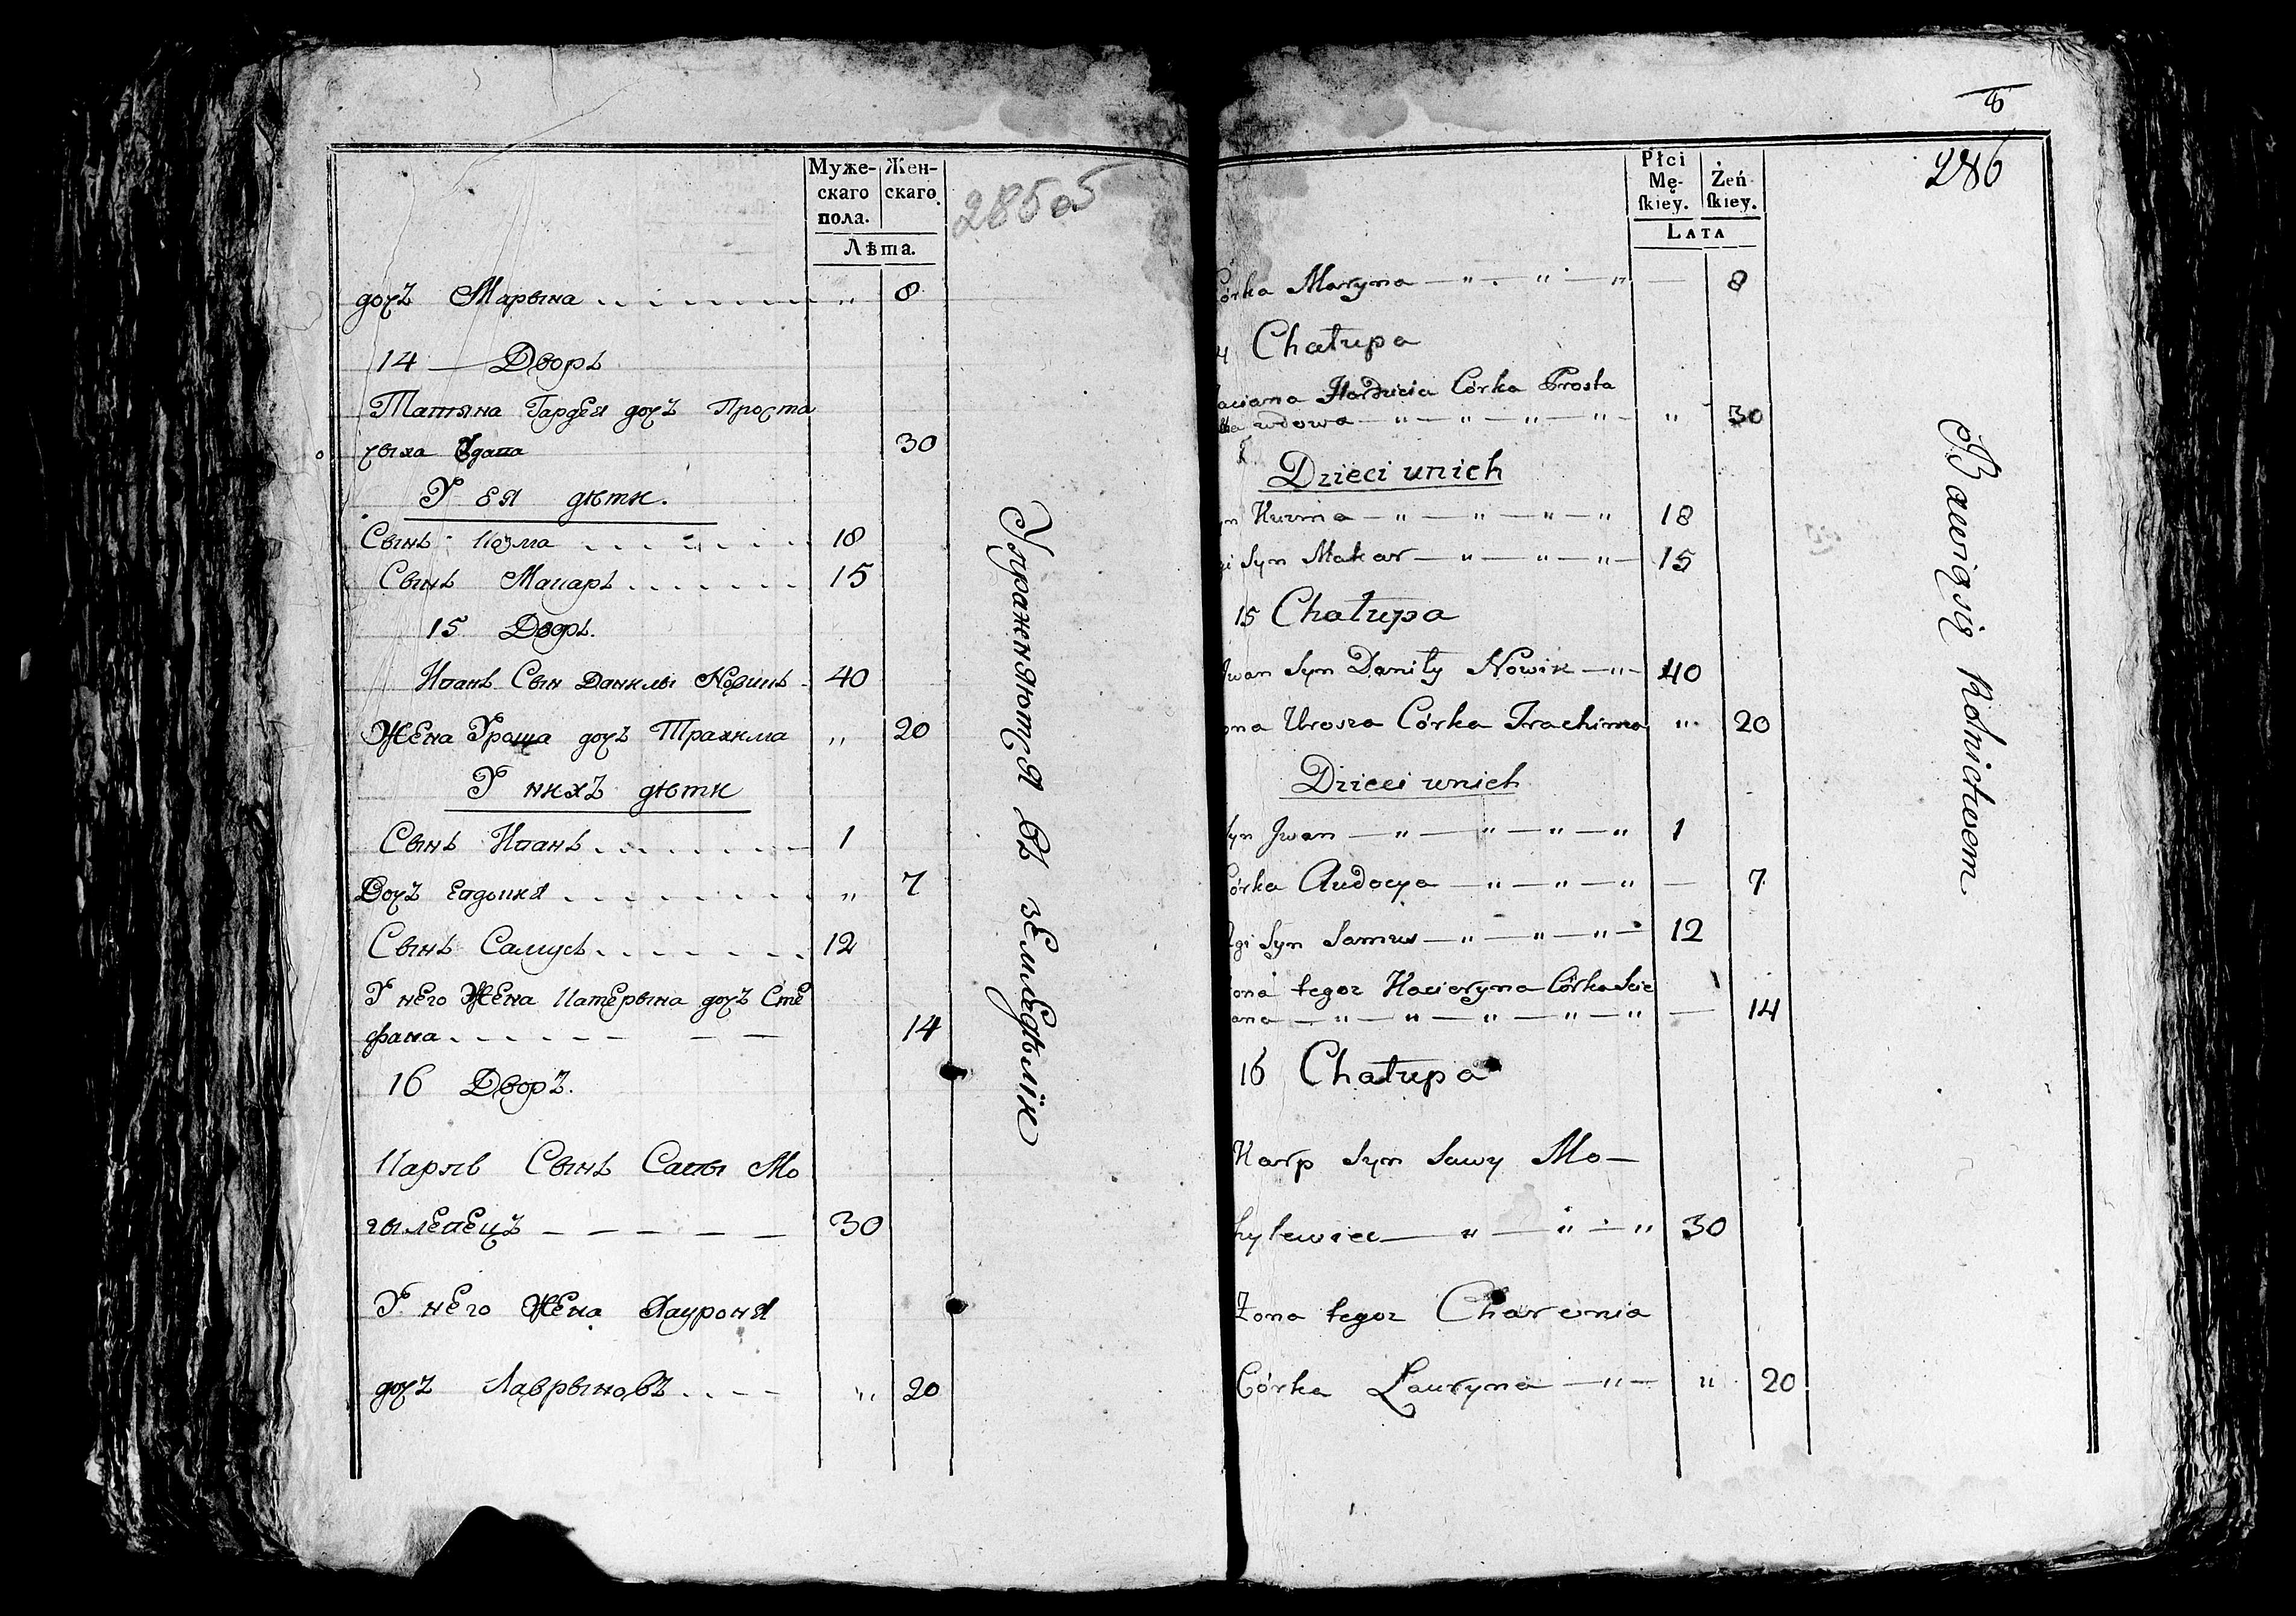 Муже-
скаго
пола.
Жен-
скаго.
Лѣта.
285об
дочъ Марына 〃 8
14 — Дворъ
Татяна Гардея дочъ Проста
чыха Вдава 30
У ея дѣти.
Сынъ Козма 18
Сынъ Макаръ 15
15 Дворъ.
Иванъ Сын Данилы Новикъ 40
Жена Уроша дочъ Трахима 〃 20
У нихъ дѣти
Сынъ Иванъ 1
Дочъ Евдокия 〃 7
Сынъ Самусь 12
У него Жена Катерына дочъ Сте
фана 14
16 Дворъ.
Карпъ Сынъ Савы Мо
гылевецъ — — — — — 30
У него Жена
дочъ Лаврыновъ 〃 20
Упражняются въ земледѣліи
Płci
Mę-
ſkiey.
Żeń
ſkiey.
LATA
286
córka Maryna — 〃 — 〃 — 〃 — 8
Chałupa
Hardzieia Córka Prosta
wdowa — 〃 — 〃 — 〃 — 〃 〃 30
Dzieci unich
Kuzma — 〃 — 〃 — 〃 — 〃 18
Syn Makar — 〃 — 〃 — 〃 — 15
15 Chałupa
Iwan Syn Daniły Nowik — 〃 — 40
Urosza Córka Trachima 〃 20
Dzieci unich
Syn Jwan — 〃 — 〃 — 〃 — 〃 1
Córka Audocya — 〃 — 〃 — 〃 — 7
Syn Samus — 〃 — 〃 — 〃 — 12
tegoz Kacieryna Córka Scie
〃 — 〃 — 〃 — 〃 — 〃 — 14
16 Chałupa
Karp Syn Sawy Mo —
hylewiec — 〃 — 〃 — 〃 30
Żona tegoz Charonia
Córka Lauryna — 〃 — 〃 20
Bawią się Rolnictwem